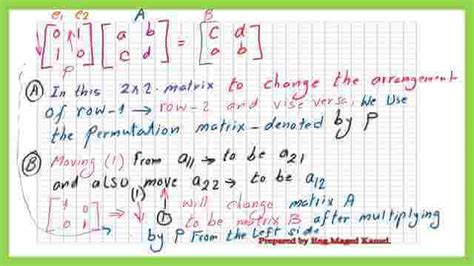 e1 e2 A B
[0 1] [a b] = [c d]
[1 0] [c d] [a b]
P
(A) In this 2x2-matrix to change the arrangement
of row-1 → row-2 and vise versa, We Use
the permutation matrix - denoted by P
(B) Moving (1) From a11 → to be a21
and also move a22 → to be a12
(1)
[1 0] ⇒ ↓ ↑ will change matrix A
[0 1] (1) to be matrix B after multiplying
by P From the Left side
Prepared by Eng.Maged Kamel.